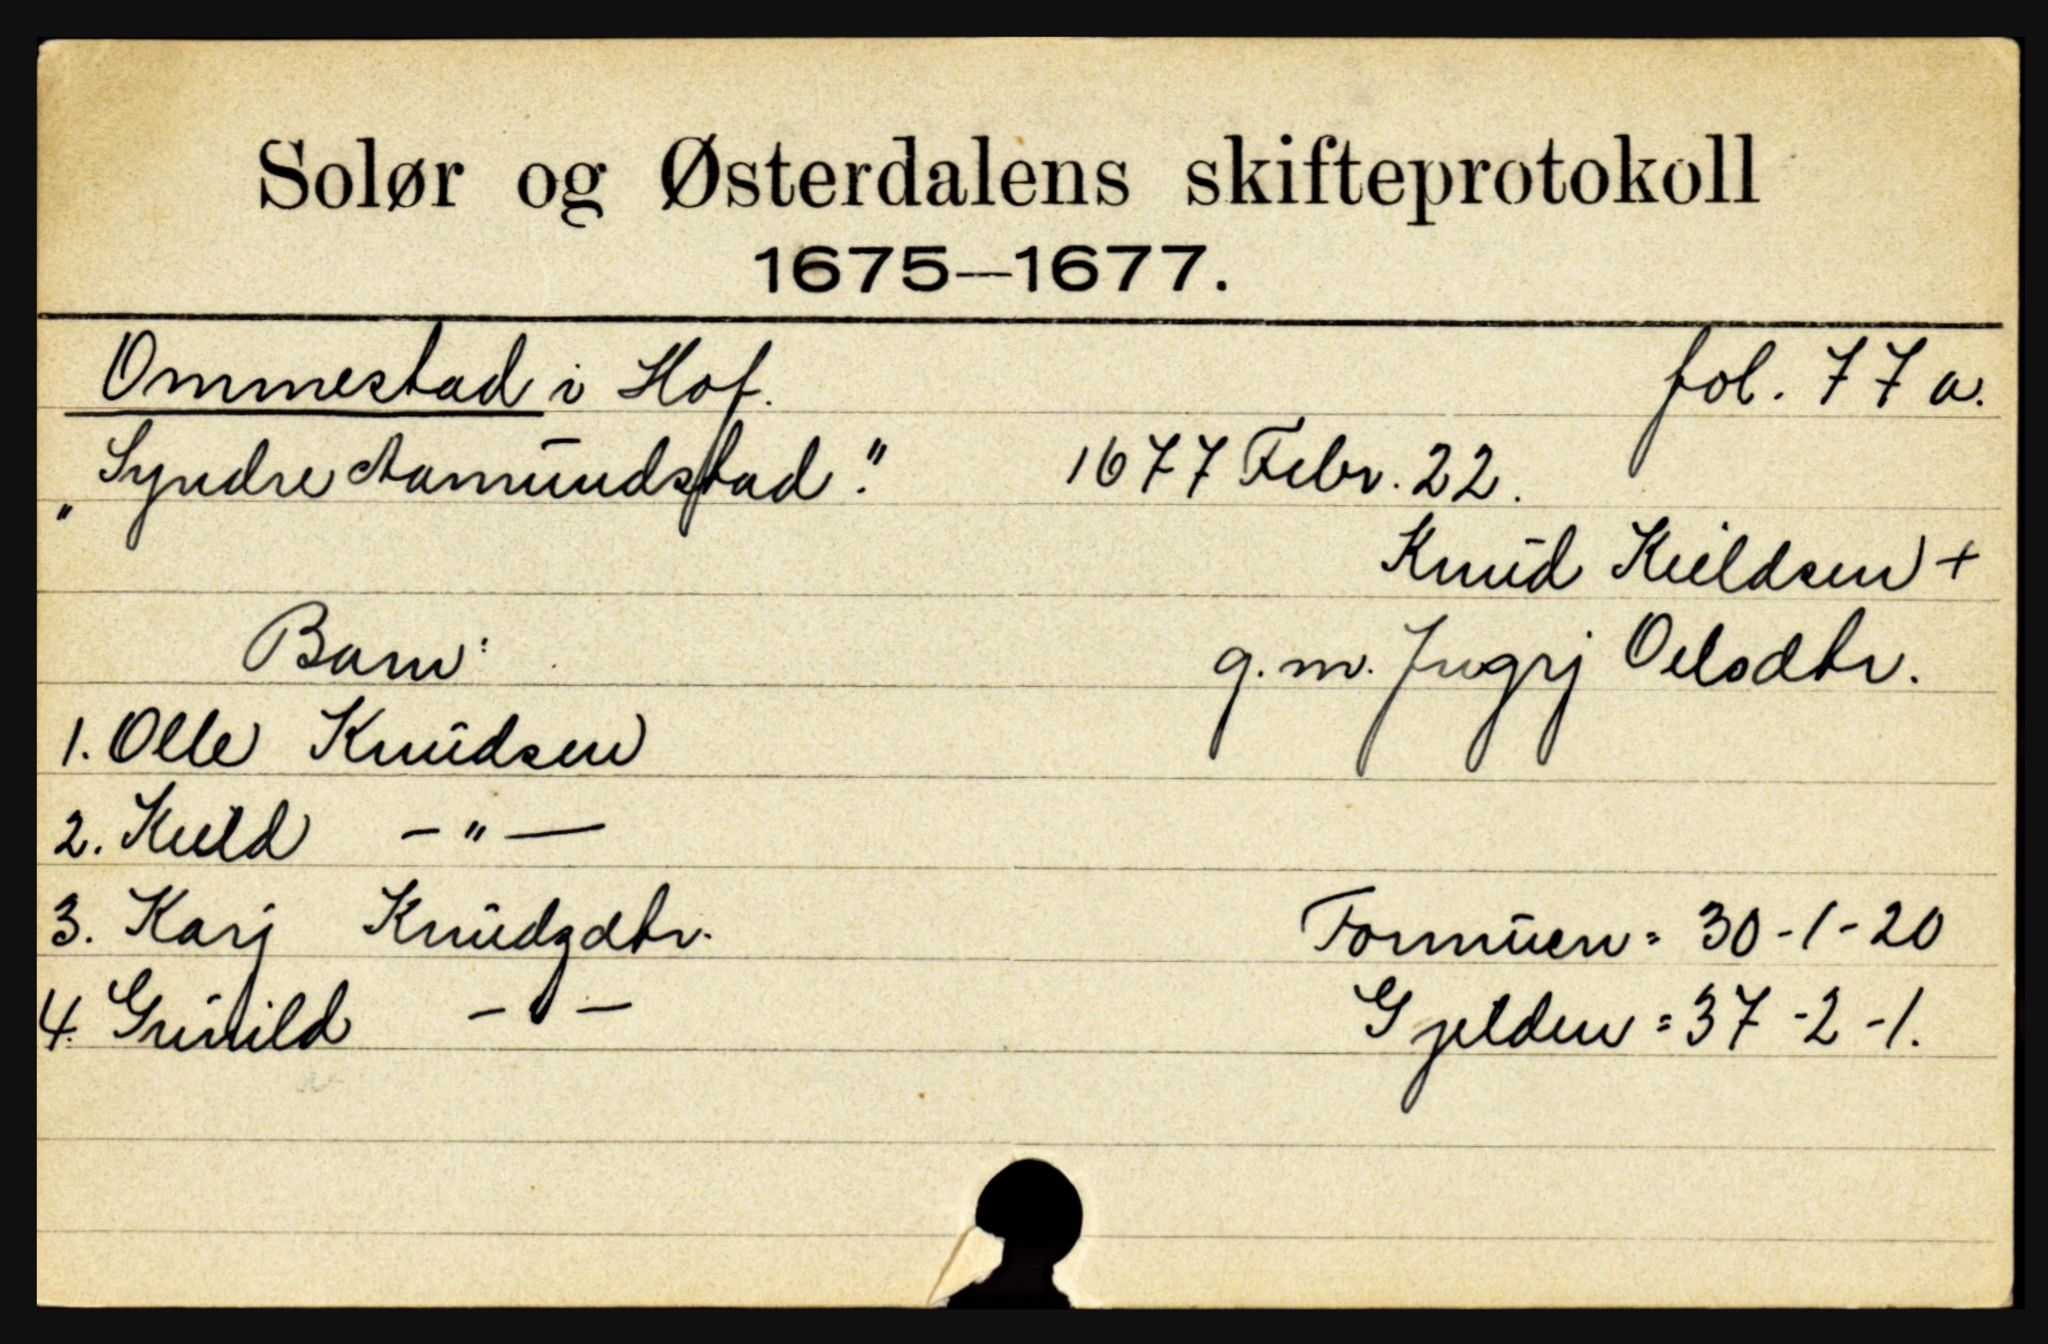 Solør og Østerdalens skifteprotokoll
1675—1677.
Ommestad i Hof. fol. 77 a.
„Syndre Aamundstad." 1677 Febr. 22.
Knud Kieldsen +
Barn: g. m. Jngrj Oelsdtr.
1. Olle Knudsen
2. Kield — " —
3. Karj Knudzdtr. Formuen = 30-1-20
4. Gunild — " — Gjelden = 37-2-1.